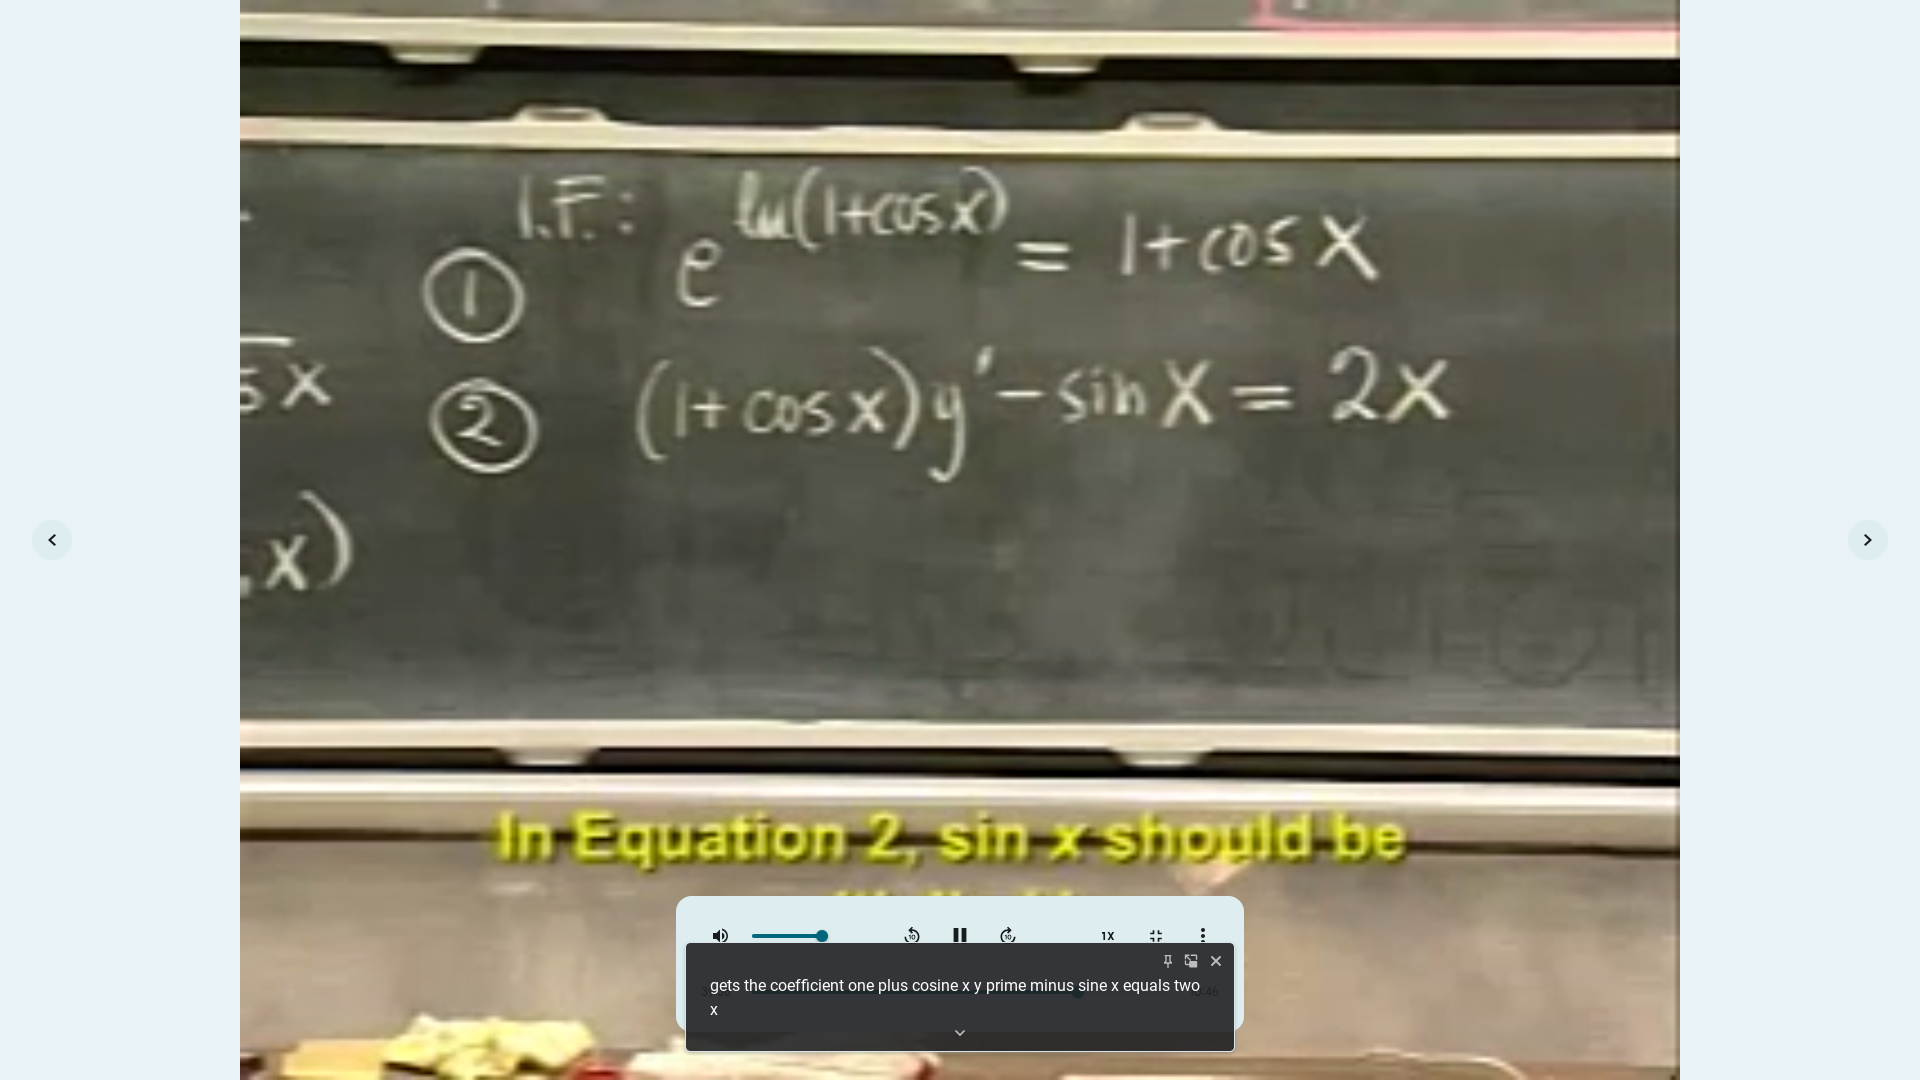 I.F.: e^ln(1+cos x) = 1+cos x
①
5x
② (1+cos x)y' - sin x = 2x
x)
In Equation 2, sin x should be
1X
gets the coefficient one plus cosine x y prime minus sine x equals two
x